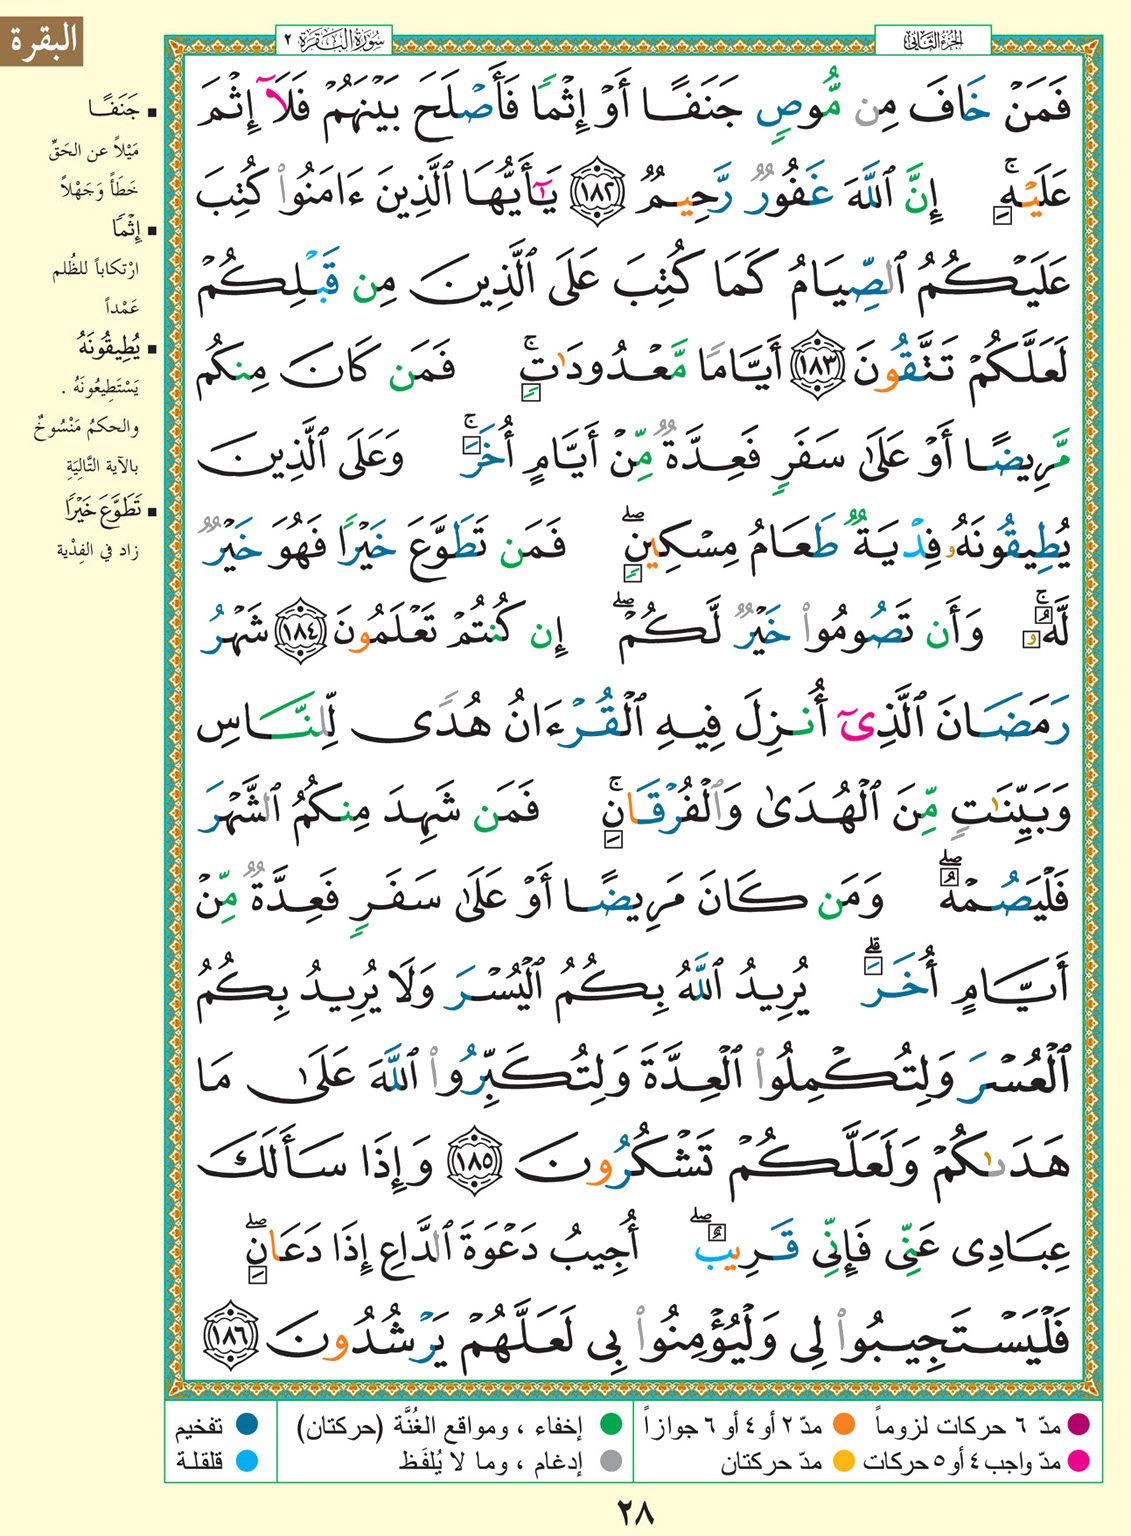 البقرة
سُورَةُ البَقَرَة ٢
الجُزءُ الثَّانِي
فَمَنْ خَافَ مِن مُّوصٍ جَنَفًا أَوْ إِثْمًا فَأَصْلَحَ بَيْنَهُمْ فَلَآ إِثْمَ
عَلَيْهِ ۚ إِنَّ ٱللَّهَ غَفُورٌ رَّحِيمٌ ١٨٢ يَـٰٓأَيُّهَا ٱلَّذِينَ ءَامَنُوا۟ كُتِبَ
عَلَيْكُمُ ٱلصِّيَامُ كَمَا كُتِبَ عَلَى ٱلَّذِينَ مِن قَبْلِكُمْ
لَعَلَّكُمْ تَتَّقُونَ ١٨٣ أَيَّامًا مَّعْدُودَٰتٍ ۚ فَمَن كَانَ مِنكُم
مَّرِيضًا أَوْ عَلَىٰ سَفَرٍ فَعِدَّةٌ مِّنْ أَيَّامٍ أُخَرَ ۚ وَعَلَى ٱلَّذِينَ
يُطِيقُونَهُۥ فِدْيَةٌ طَعَامُ مِسْكِينٍ ۖ فَمَن تَطَوَّعَ خَيْرًا فَهُوَ خَيْرٌ
لَّهُۥ ۚ وَأَن تَصُومُوا۟ خَيْرٌ لَّكُمْ ۖ إِن كُنتُمْ تَعْلَمُونَ ١٨٤ شَهْرُ
رَمَضَانَ ٱلَّذِىٓ أُنزِلَ فِيهِ ٱلْقُرْءَانُ هُدًى لِّلنَّاسِ
وَبَيِّنَـٰتٍ مِّنَ ٱلْهُدَىٰ وَٱلْفُرْقَانِ ۚ فَمَن شَهِدَ مِنكُمُ ٱلشَّهْرَ
فَلْيَصُمْهُ ۖ وَمَن كَانَ مَرِيضًا أَوْ عَلَىٰ سَفَرٍ فَعِدَّةٌ مِّنْ
أَيَّامٍ أُخَرَ ۗ يُرِيدُ ٱللَّهُ بِكُمُ ٱلْيُسْرَ وَلَا يُرِيدُ بِكُمُ
ٱلْعُسْرَ وَلِتُكْمِلُوا۟ ٱلْعِدَّةَ وَلِتُكَبِّرُوا۟ ٱللَّهَ عَلَىٰ مَا
هَدَىٰكُمْ وَلَعَلَّكُمْ تَشْكُرُونَ ١٨٥ وَإِذَا سَأَلَكَ
عِبَادِى عَنِّى فَإِنِّى قَرِيبٌ ۖ أُجِيبُ دَعْوَةَ ٱلدَّاعِ إِذَا دَعَانِ ۖ
فَلْيَسْتَجِيبُوا۟ لِى وَلْيُؤْمِنُوا۟ بِى لَعَلَّهُمْ يَرْشُدُونَ ١٨٦
▪ جَنَفًا
مَيْلاً عن الحَقِّ
خَطَأً وَجَهْلاً
▪ إِثْمًا
ارْتكاباً للظُلم
عَمْداً
▪ يُطِيقُونَهُ
يَسْتَطِيعُونَهُ .
والحكمُ مَنْسُوخٌ
بالآية التَّالِيَةِ
▪ تَطَوَّعَ خَيْرًا
زاد في الفِدْية
مدّ ٦ حركات لزوماً مدّ ٢ أو ٤ أو ٦ جوازاً إخفاء ، ومواقع الغُنَّة (حركتان) تفخيم
مدّ واجب ٤ أو ٥ حركات مدّ حركتان إدغام ، وما لا يُلفَظ قلقلة
٢٨